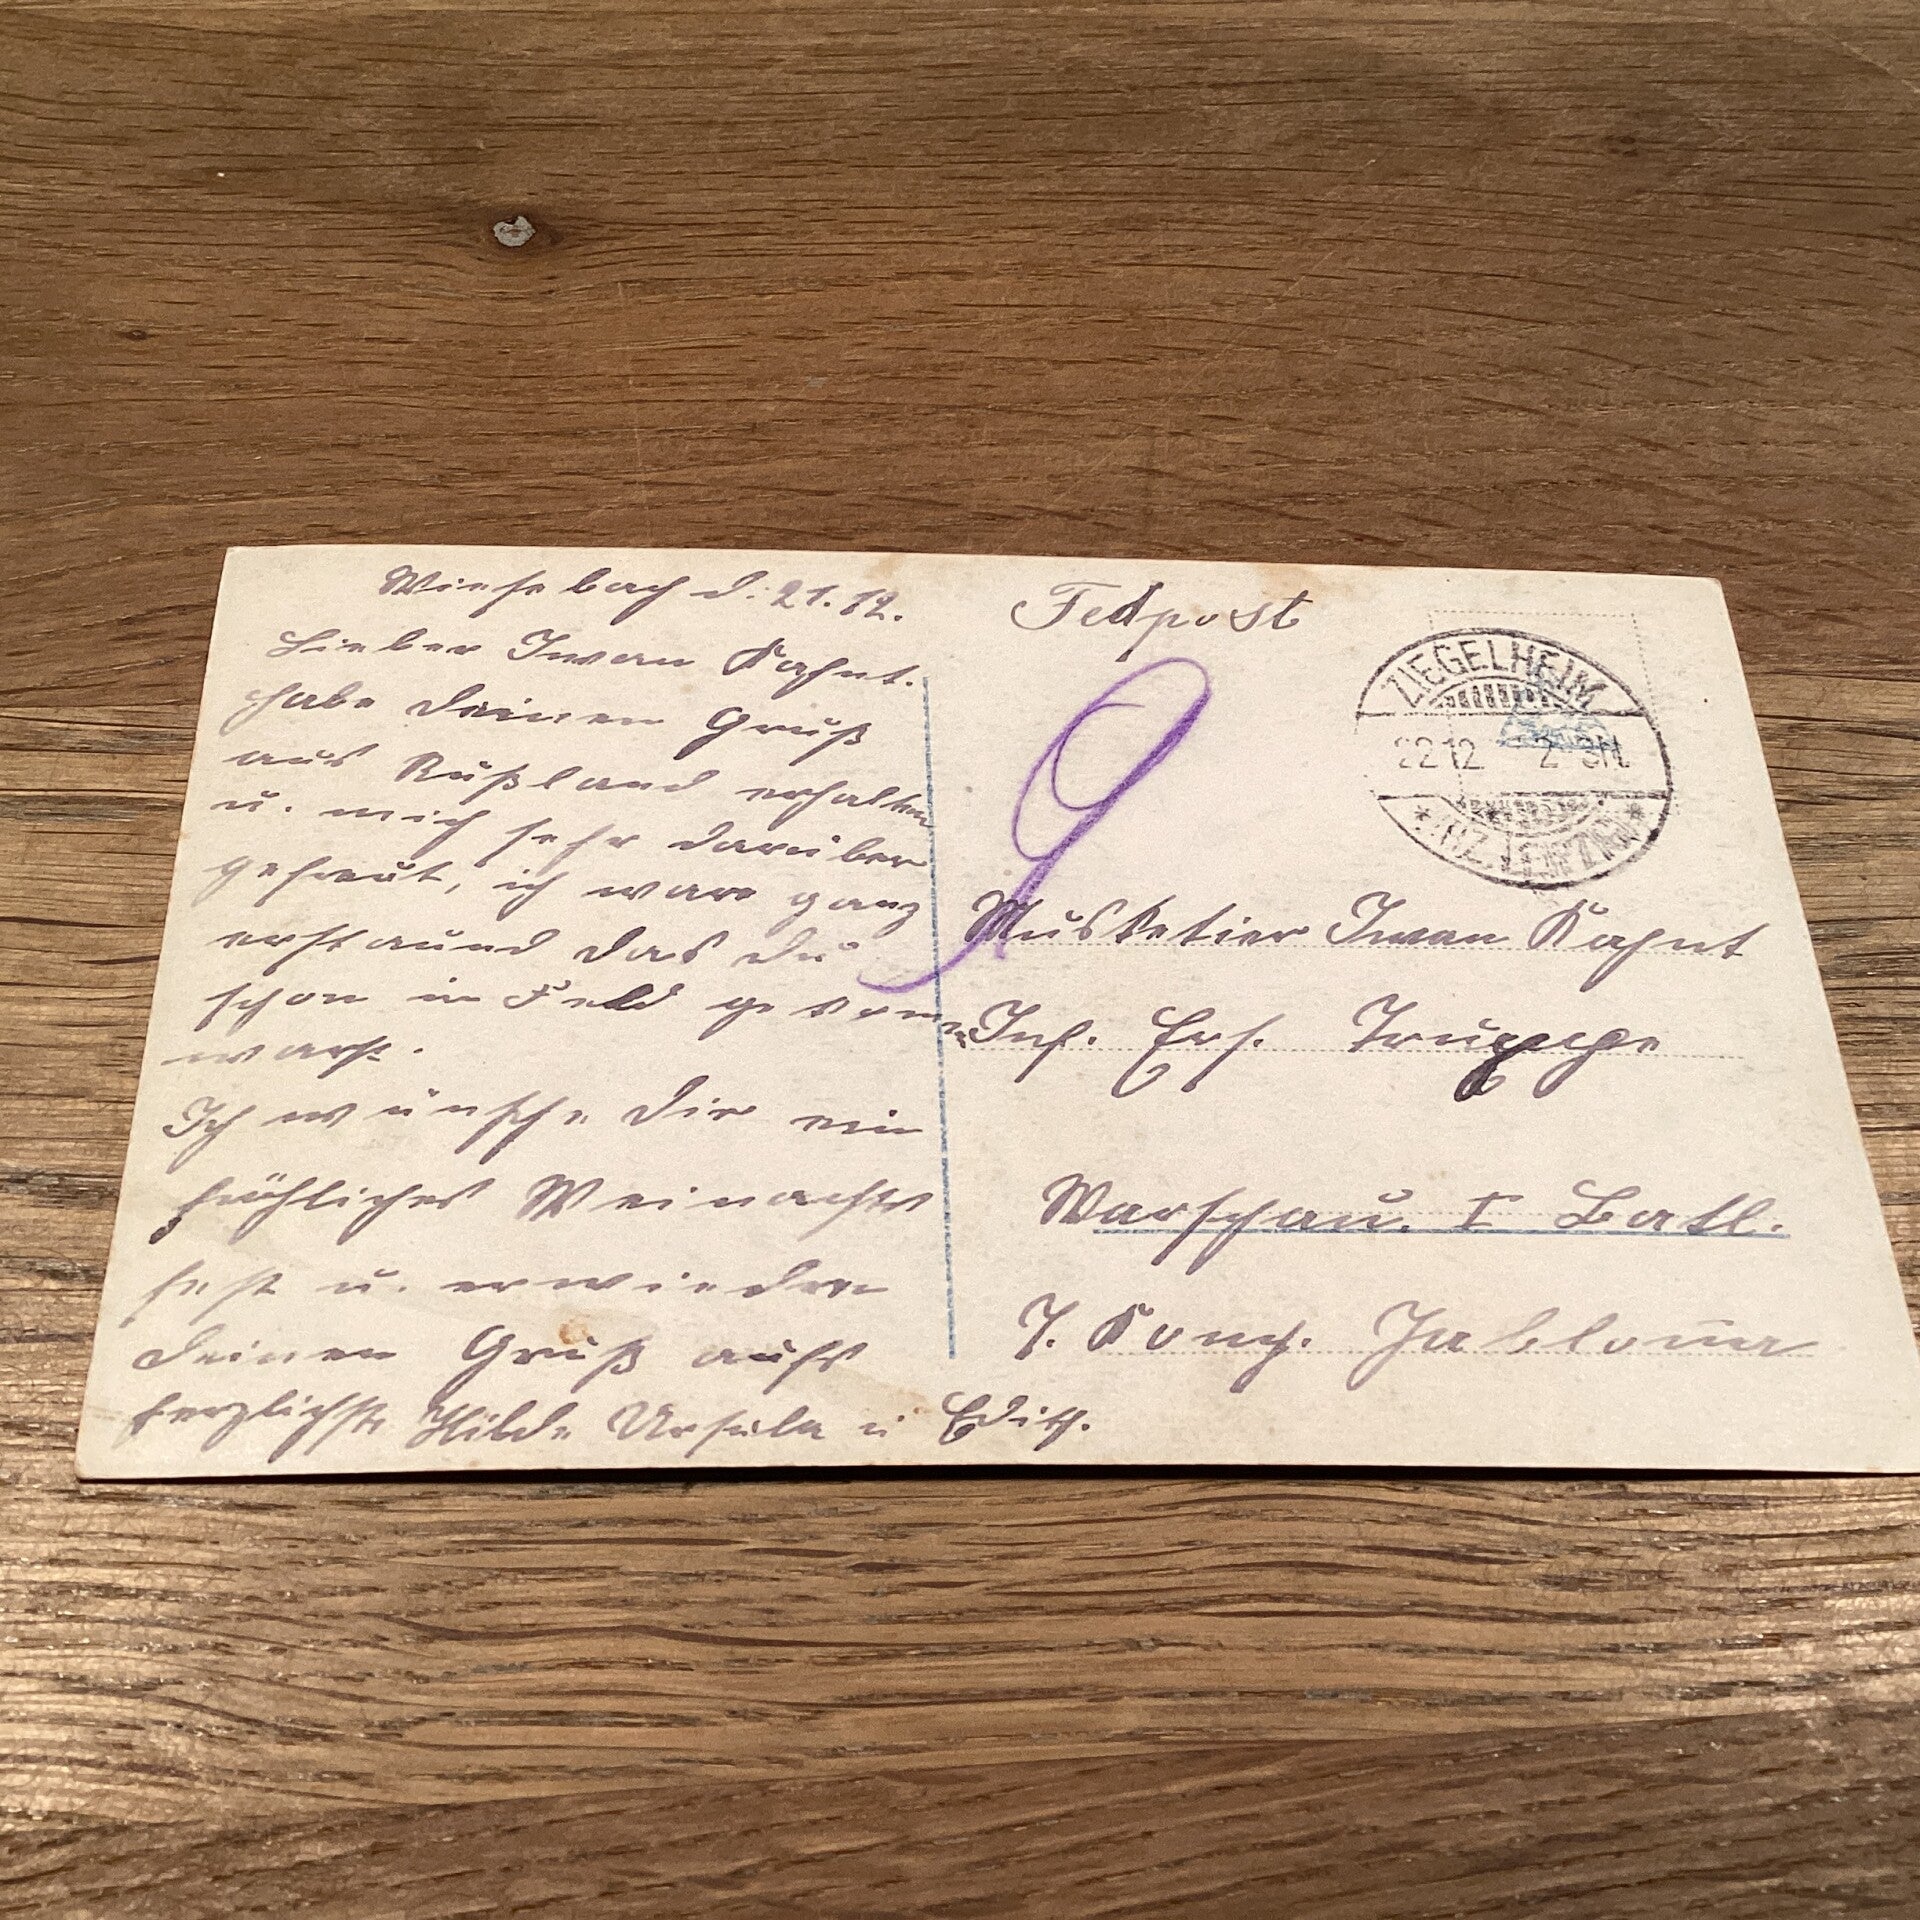 Wiesebach d. 21.12.
Lieber Iwan Kahnt.
habe deinen Gruß
aus Rußland erhalten
u. mich sehr darüber
gefreut, ich ware ganz
erstaund das du
schon in Feld gekomen
warst.
Ich wünsche dir ein
fröhliches Weinachts
fest u. erwiedre
deinen Gruß aufs
herzlichste Hilde Ursula u Edith.
Fedpost
ZIEGELHEIM
22 12 2-3N.
LEIPZIG
9
Musketier Iwan Kahnt
Inf. Ers. Truppe
Warschau. I Batl.
7. Komp. Jablonna